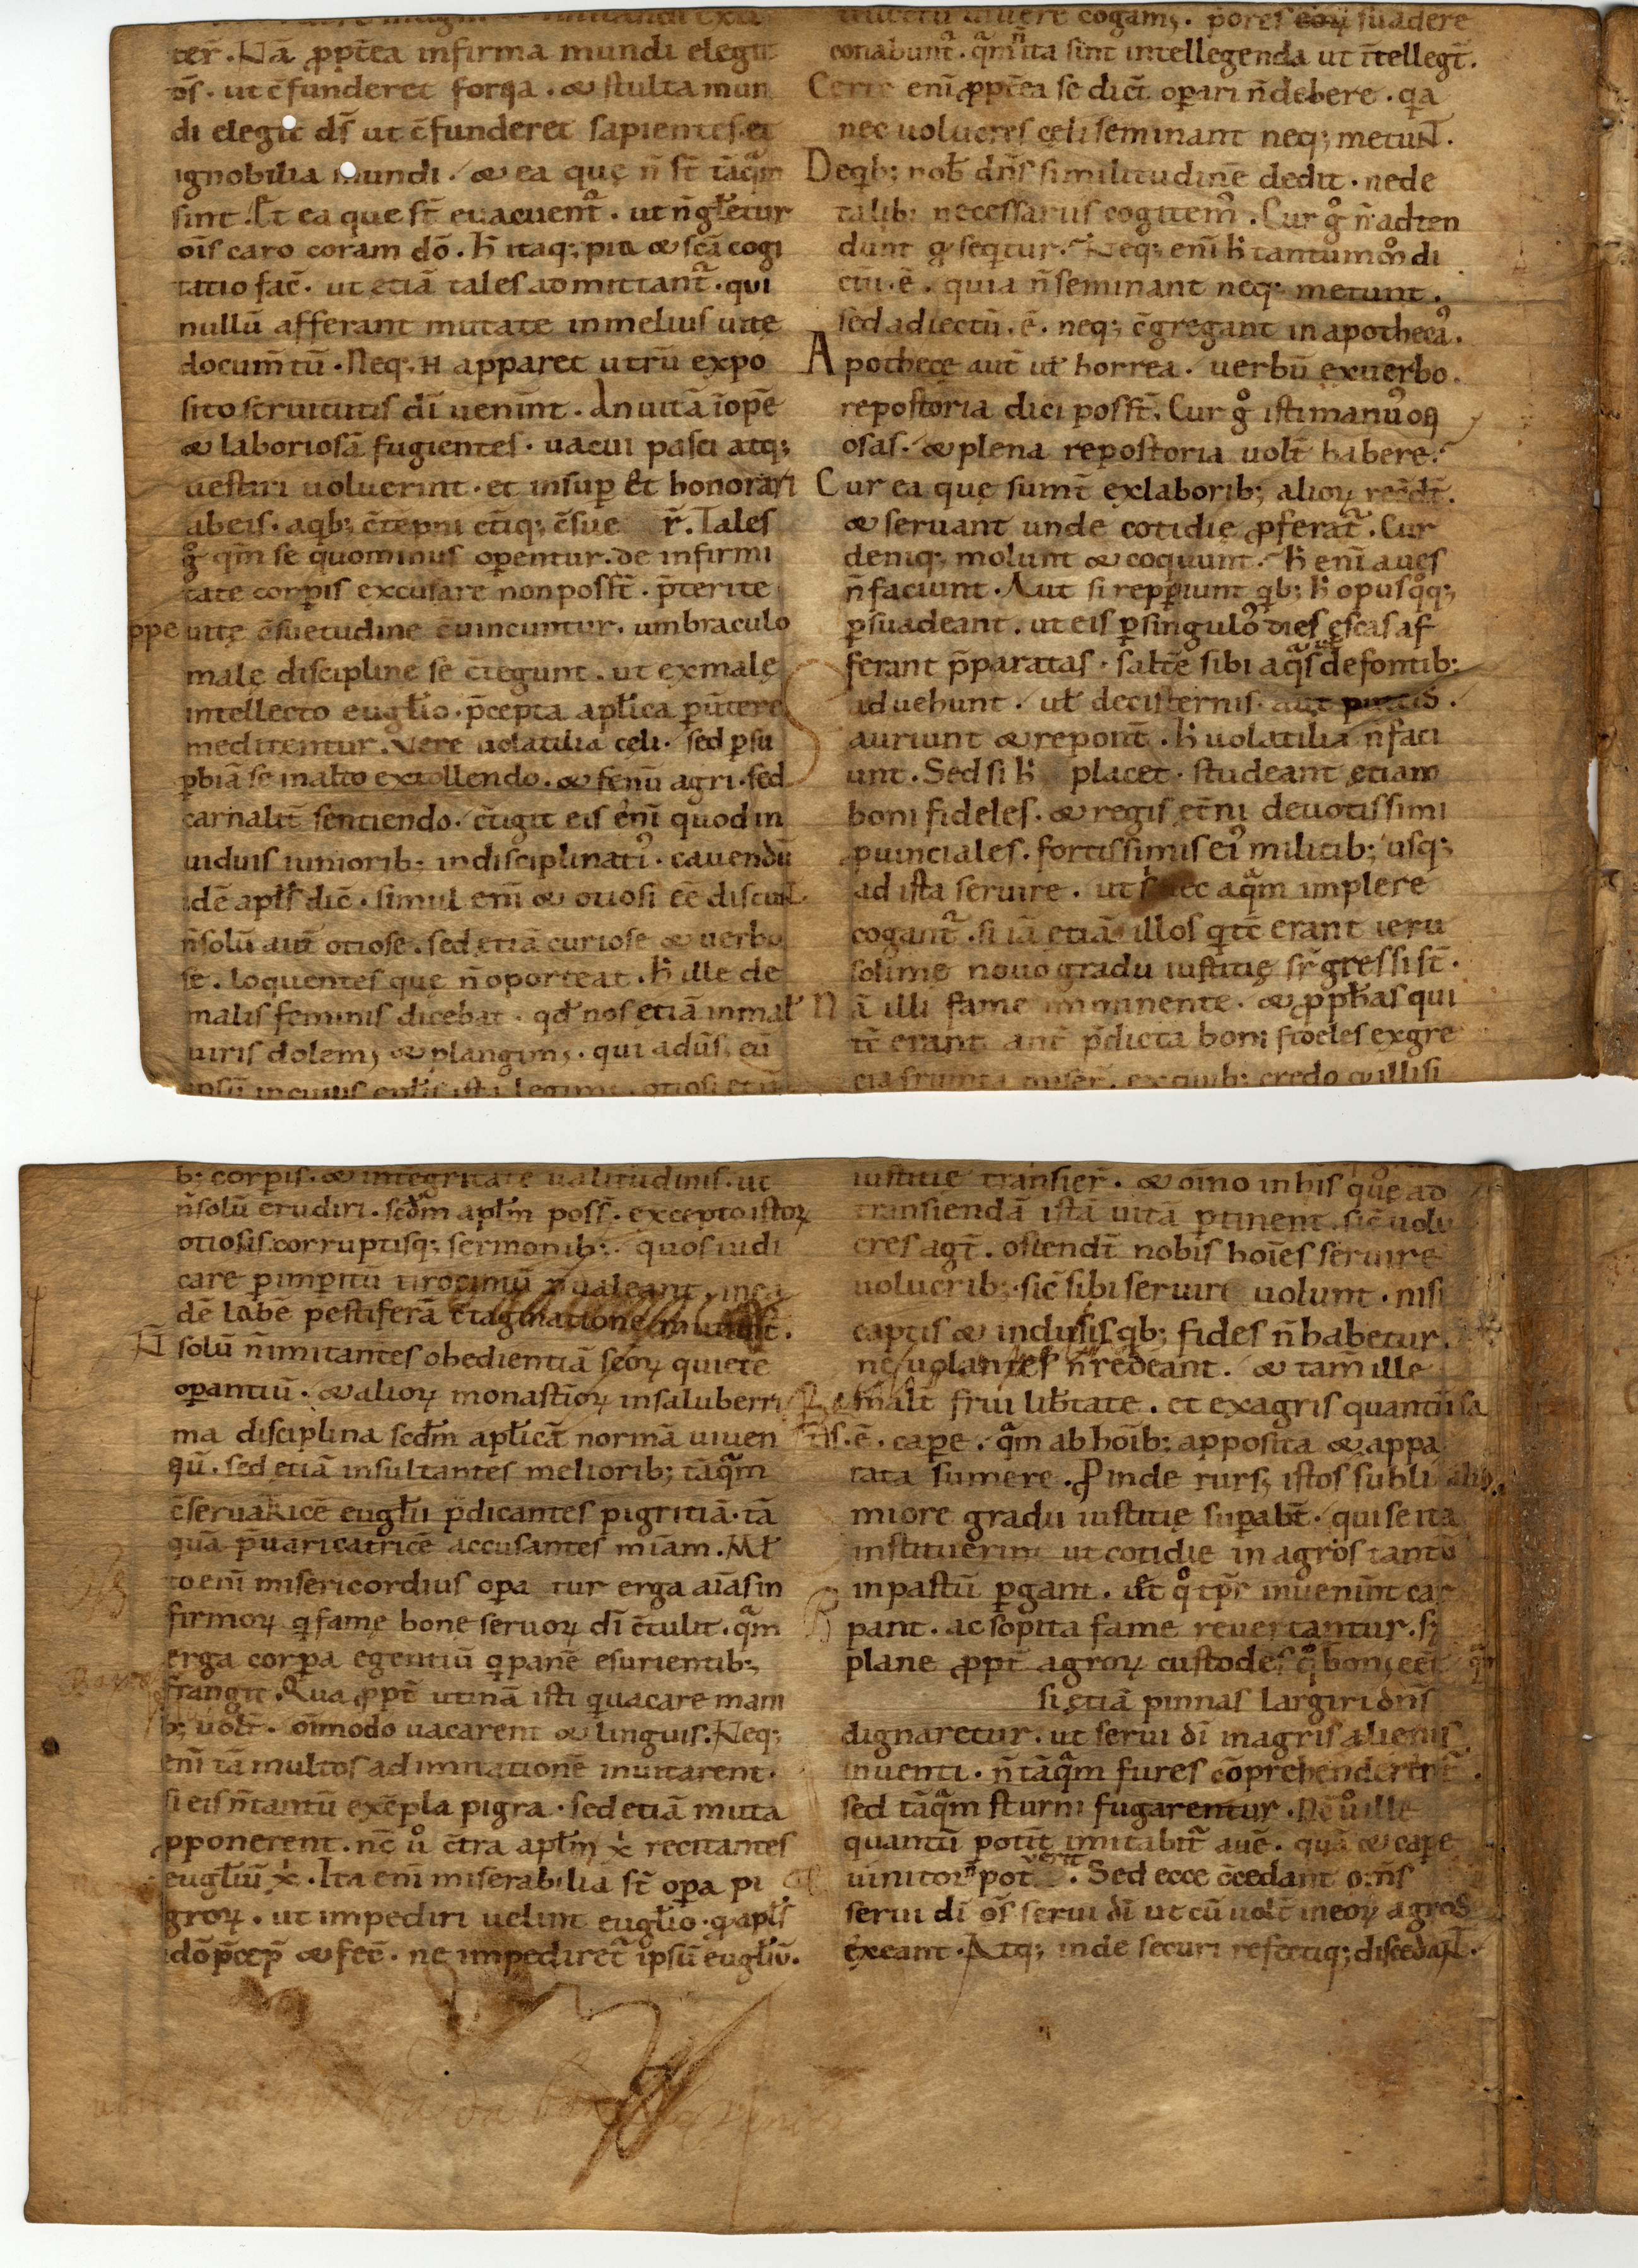 ter̄. Nā ꝓpt̄ea infirma mundi elegit
ds̄. ut c̄funderet fortia. & stulta mun
di elegit ds̄ ut c̄funderet sapientes. et
ignobilia mundi. & ea quę n̄ st̄ tāqm
sint. Et ea que st̄ evacuent᷑. ut n̄ gl̄etur
oīs caro coram dō. h̄ itaq; pia & scā cogi
tatio fac̄. ut etiā tales admittant᷑. qui
nullū afferant mutate in melius uitę
docum̄tū. Neq; н apparet utrū expo
sito seruitutis dī uenīnt. An uitā īopē
& laboriosā fugientes. uacui pasci atq;
uestiri uoluerint. et insuꝑ et honorari
ab eis. a qb; c̄tepni c̄tiq; c̄sue r̄. Tales
gͦ qm̄ se quominus oꝑentur. de infirmi
tate corꝑis excusare non possт̄. p̄teritę
uitę c̄suetudine c̄uincuntur. umbraculo
malę disciplinę se c̄tegunt. ut ex malę
intellecto eugl̄io. p̄cepta apl̄ica ꝑūtere
meditentur. Vere uolatilia cęli. sed ꝑ su
ꝑbiā se in alto extollendo. & fenū agri. sed
carnalit̄ sentiendo. c̄tigit eis enī quod in
uiduis iuniorib; indisciplinatꝰ. cauendū
idē apl̄s dic̄. simul enī & otiosi eē discunt.
n̄ solū aut̄ otiose. sed etiā curiose & uerbo
se. loquentes quę n̄ oporteat. h̄ ille de
malis feminis dicebat. qd̄ nos etiā in mal̄
uiris dolem; & plangim;. qui adūs eū
conabunt᷑. qm̄ n̄ ita sint intellegenda ut ītellegt̄.
Certe enī ꝓpt̄ea se dict̄ oꝑari n̄ debere. qa
nec uolucres cęli seminant neq; metunt.
De qb; nob̄ dn̄s similitudinē dedit. ne de
talib; necessariis cogitemꝰ. Cur gͦ n̄ adten
dunt qͦ seqitur. Neq; enī h̄ tantummō di
ctū. ē. quia n̄ seminant neq; metunt.
sed adiectū. ē. neq; c̄gregant in apothecaꝰ.
Apothecę aut̄ ul̄ horrea. uerbū ex uerbo.
repostoria dici posst̄. Cur gͦ isti manuꝰ oti
osas. & plena repostoria uolt̄ habere.
Cur ea que sumt̄ ex laborib; alioꝝ recōdt̄.
& seruant unde cotidię ꝓferat᷑. Cur
deniq; molunt & coquunt. h̄ enī aues
n̄ faciunt. Aut si repꝑiunt qb; h̄ opus qͦq;
ꝑsuadeant. ut eis ꝑ singuloꝰ dies ęscas af
ferant p̄paratas. saltē sibi aqͣs de fontib;
aduehunt. ul̄ de cisternis. aut puteis.
auriunt & repont̄. h̄ uolatilia n̄ faci
unt. Sed si h̄ placet. studeant etiam
boni fideles. & regis et̄ni deuotissimi
ꝓuinciales. fortissimis eiꝰ militib; usq;
ad ista seruire. ut s nec aqͣm implere
cogant᷑. si iā etiā illos qi tc̄ erant ieru
solimę nouo gradu iustitię sr̄gressi st̄.
Nā illi fame imminente. & ꝓph̄as qui
tc̄ erant ant̄ p̄dicta boni fideles ex gre
b; corꝑis. & integritate ualitudinis. ut
n̄ solū erudiri. scd̄m apl̄m poss̄. excepto istoꝝ
otiosis. corruptisq; sermonib;. quos iudi
care ꝑ imꝑitū tirociniū n̄ ualeant. in ea
dē labē pestiferā c̄taginatione mutent̄.
N̄ solū n̄ imitantes obedientiā scōꝝ quiete
oꝑantiū. & alioꝝ monastīoꝝ in saluberri
ma disciplina scd̄m apl̄icā normā uiuen
tiū. sed etiā insultantes meliorib; tāqm̄
c̄seruatricē eugl̄ii p̄dicantes pigritiā. tā
quā p̄uaricatricē accusantes mīam. Ml̄
to enī misericordius oꝑa tur erga aīas in
firmoꝝ q famę bonę seruoꝝ dī c̄tulit. qͣm
erga corꝑa egentiū q panē esurientib;
frangit. Qua ꝓpt̄ utinā isti q uacare mani
b; uolt̄. oīmodo uacarent & linguis. Neq;
enī tā multos ad imitationē inuitarent.
si eis n̄ tantū exēpla pigra. sed etiā muta
ꝓponerent. nc̄ uͦ c̄tra apl̄m xi recitantes
eugl̄iū xi. Ita enī miserabilia st̄ oꝑa pi
groꝝ. ut impediri uelint eugl̄io. q apl̄s
idō p̄cep̄ & fec̄. ne impediret᷑ ipsū eugl̄iū.
iustitię transier̄. & oīno in his quę ad
transiendā istā uitā ꝑtinent. sic̄ uolu
cres agt̄. ostendt̄ nobis hoīes seruire
uolucrib;. sic̄ sibi seruiri uolunt. nisi
captis & inclusis qb; fides n̄ habetur.
ne uolantes n̄ redeant. & tam̄ ille
malt̄ frui lib̄tate. et ex agris quantū sa
tis. ē. caꝑe. qͣm ab hoīb; apposita & appa
rata sumere. Proinde rurs; istos subli
miore gradu iustitię suꝑabt̄. qui se ita
instituerint ut cotidie in agros tantū
in pastū ꝑgant. & qͦ tp̄r inuenint̄ car
pant. ac sopita fame reuertantur. sꝫ
plane ꝓpt̄ agroꝝ custodes qͣ bon; eēt
si etiā pinnas largiri dn̄s
dignaretur. ut serui dī in agris alienis
inuenti. n̄ tāqͣm fures cōprehenderent̄.
sed tāqͣm sturni fugarentur. Nc̄ uͦ ille
quantū potīt imitabit᷑ auē. quā & caꝑe
uinitor n̄ pot . Sed ecce c̄cedant om̄s
serui dī os̄ serui dī ut cū uolt̄ in eoꝝ agros
exeant. Atq; inde securi refectiq; discedant.